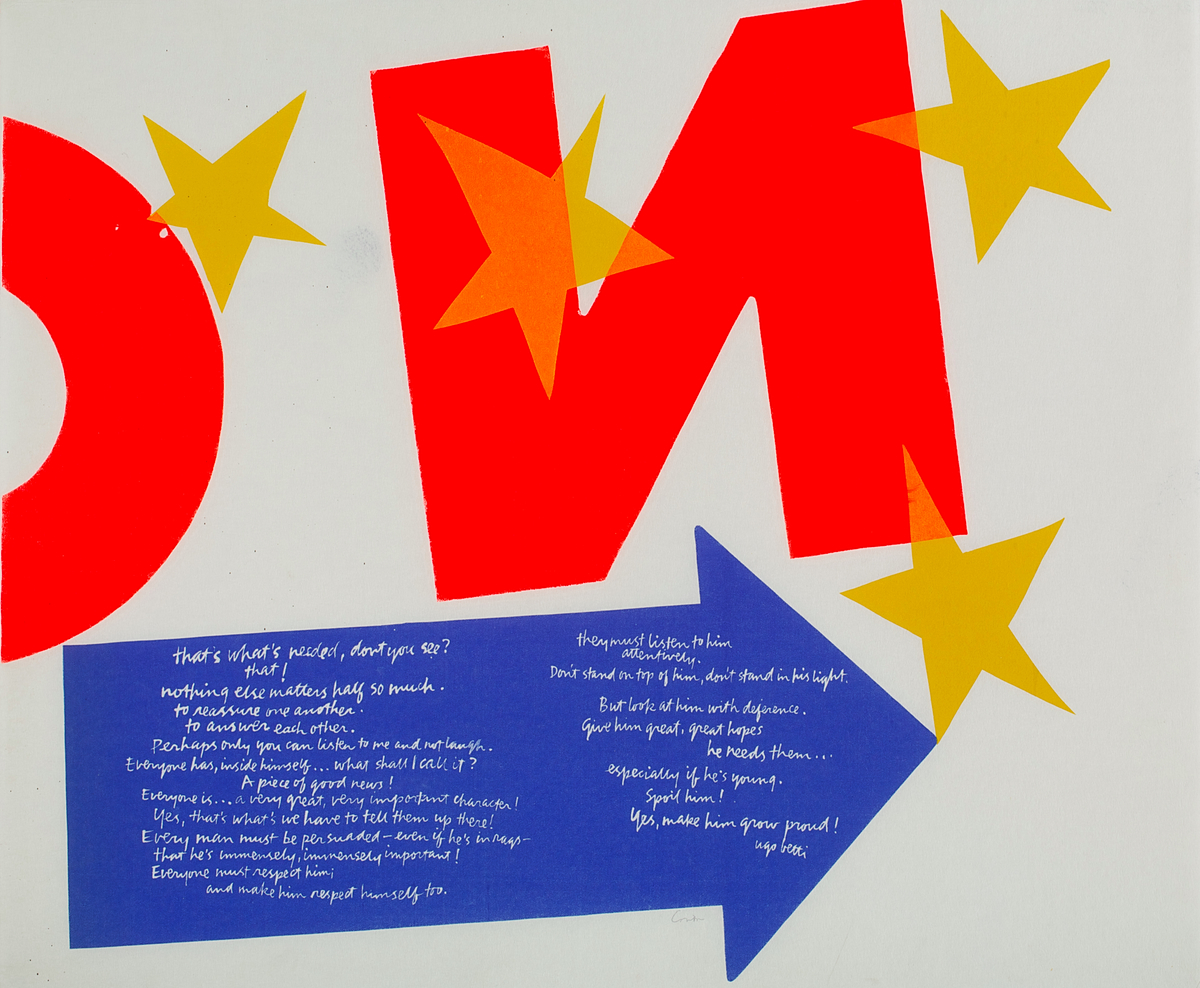 OИ
that's what's needed, don't you see?
that!
nothing else matters half so much.
to reassure one another.
to answer each other.
Perhaps only you can listen to me and not laugh.
Everyone has, inside himself... what shall I call it?
A piece of good news!
Everyone is... a very great, very important character!
Yes, that's what's we have to tell them up there!
Every man must be persuaded - even if he's in rags -
that he's immensely, immensely important!
Everyone must respect him;
and make him respect himself too.
they must listen to him
attentively.
Don't stand on top of him, don't stand in his light.
But look at him with deference.
Give him great, great hopes
he needs them...
especially if he's young.
Spoil him!
Yes, make him grow proud!
ugo betti